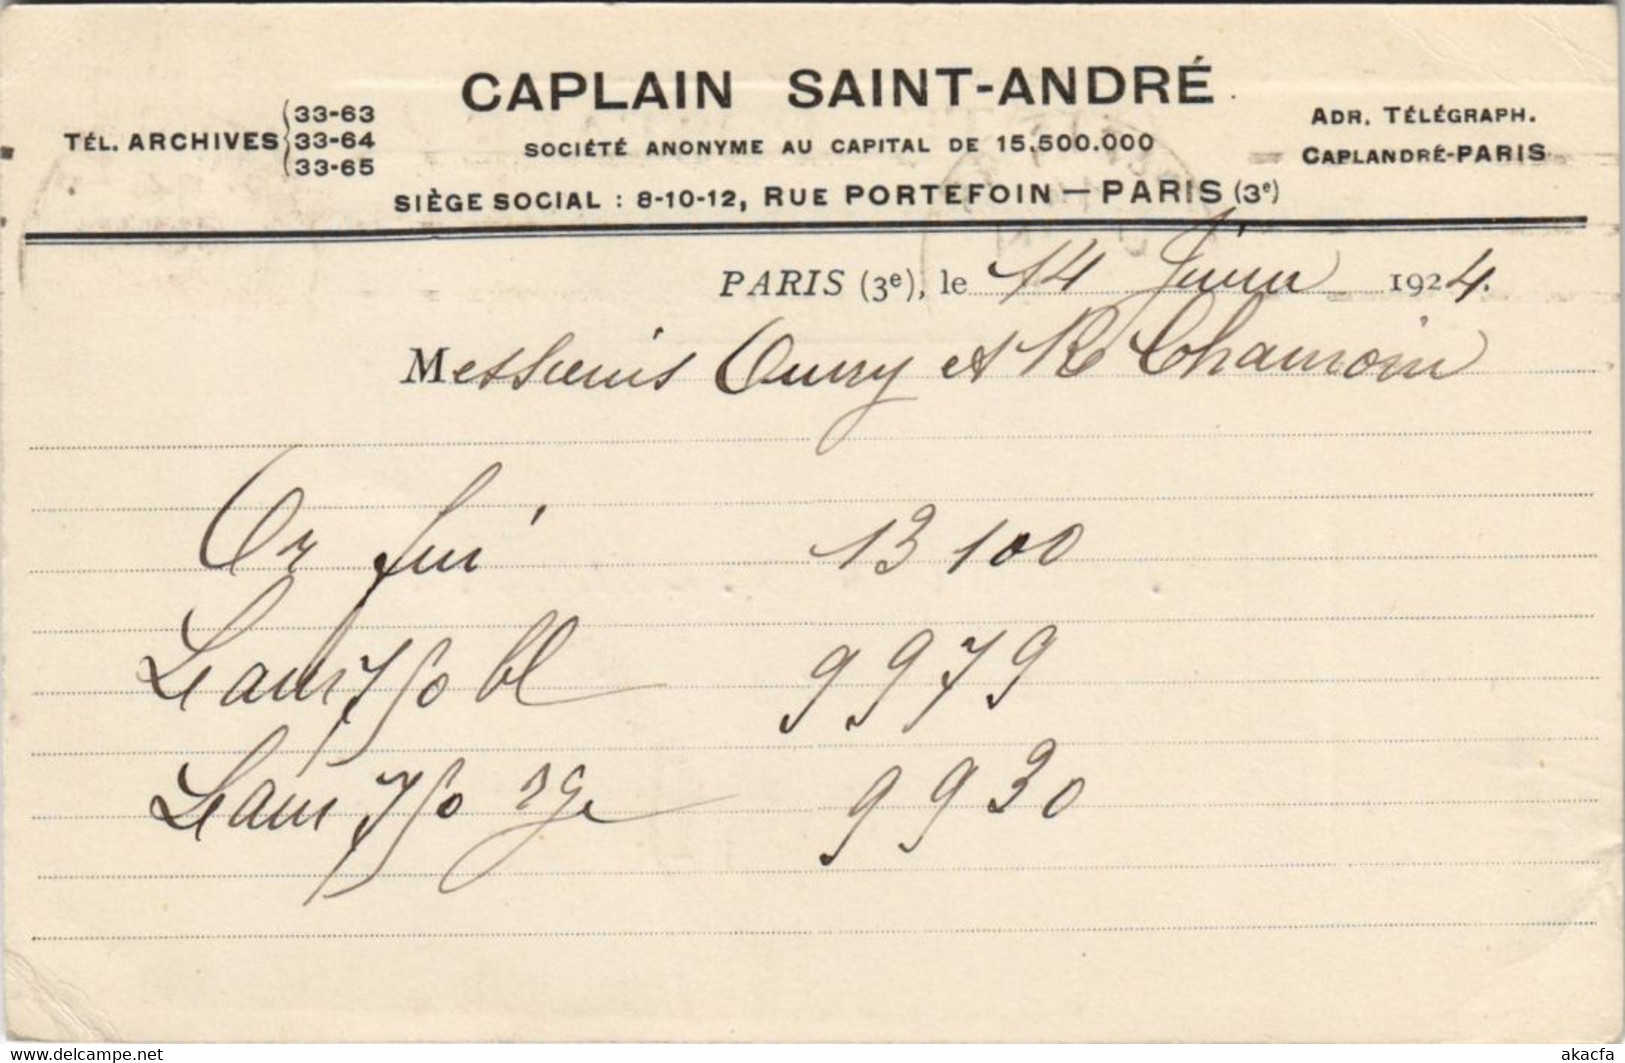 CAPLAIN SAINT-ANDRÉ
TÉL. ARCHIVES 33-63
33-64
33-65
SOCIÉTÉ ANONYME AU CAPITAL DE 15.500.000
ADR. TÉLÉGRAPH.
CAPLANDRÉ-PARIS
SIÈGE SOCIAL : 8-10-12, RUE PORTEFOIN — PARIS (3e)
PARIS (3e), le 14 Juin 1924.
Messieurs et
Or fin 13 100
750 9979
750 rge 9930
www.delcampe.net
akacfa